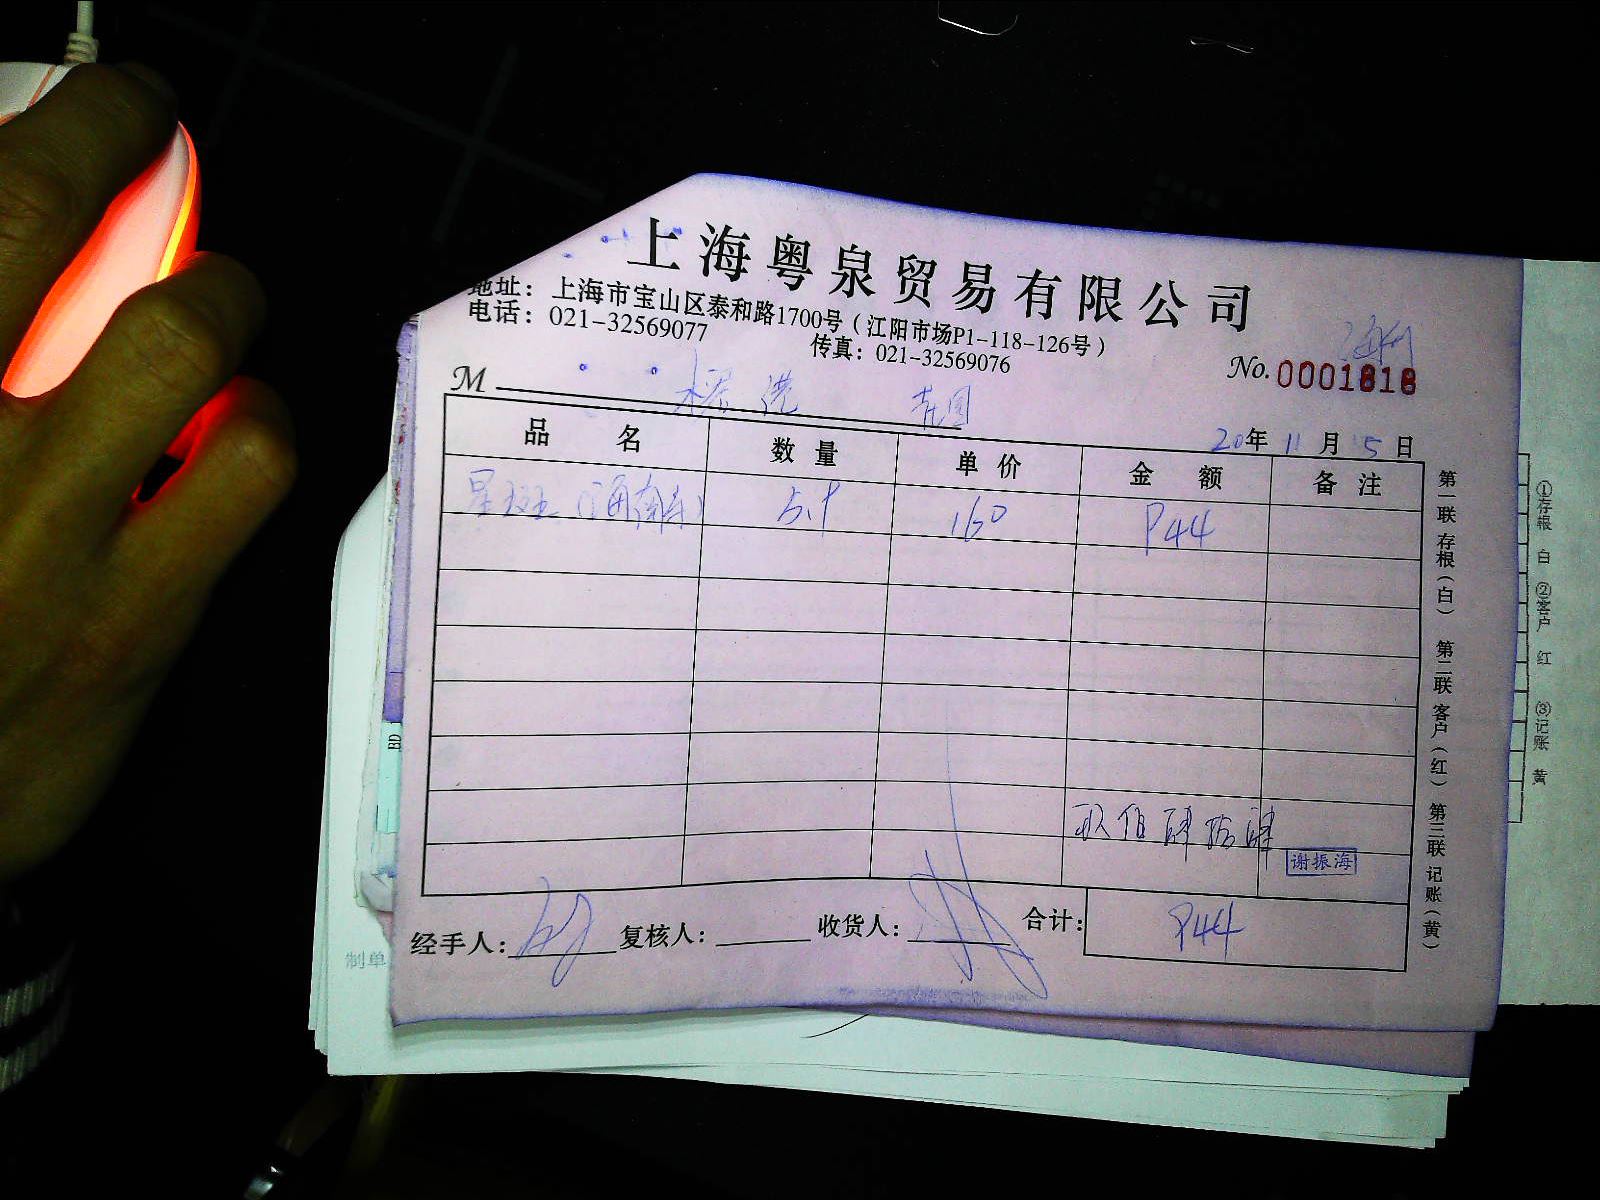 上海粤泉贸易有限公司
地址：上海市宝山区泰和路1700号（江阳市场P1-118-126号）
电话：021-32569077 传真：021-32569076
No.0001818
M
20年 11月 5日
品 名 数 量 单 价 金 额 备 注
星斑 160 944
玖佰肆拾肆
谢振海
经手人： 复核人： 收货人： 合计： 944
第一联 存根（白） 第二联 客户（红） 第三联 记账（黄）
①存根 白 ②客户 红 ③记账 黄
制单
BD